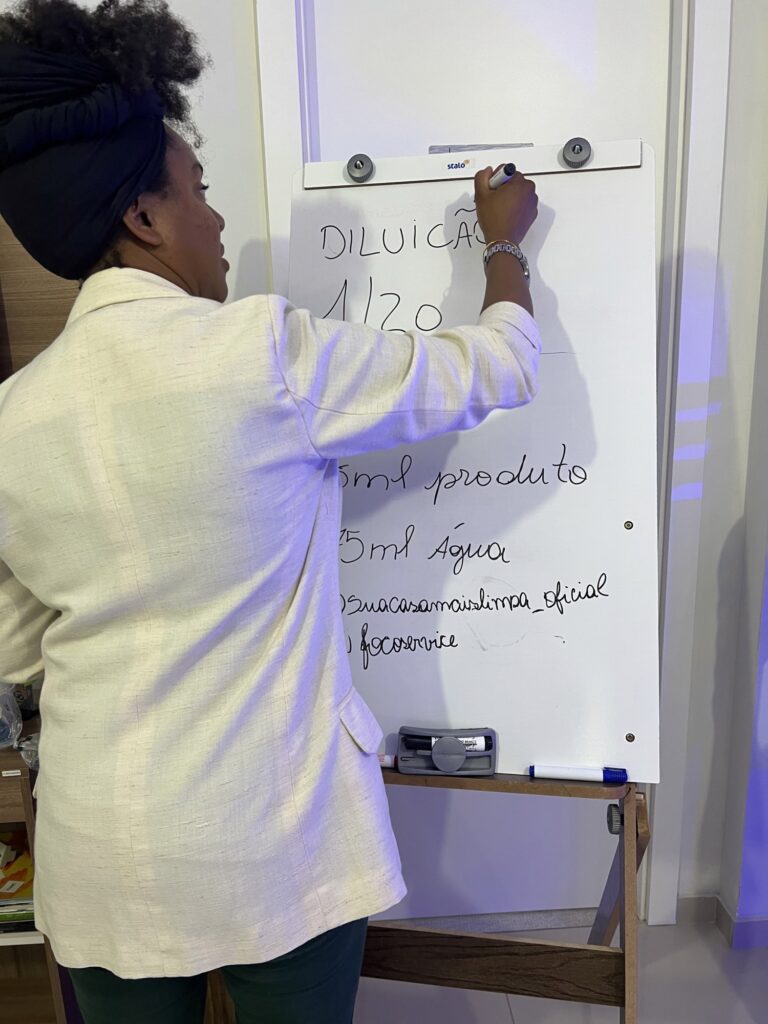 stalo
DILUICÃO
1/20
5ml produto
75ml Água
suacasamaislimpa_oficial
focoservice